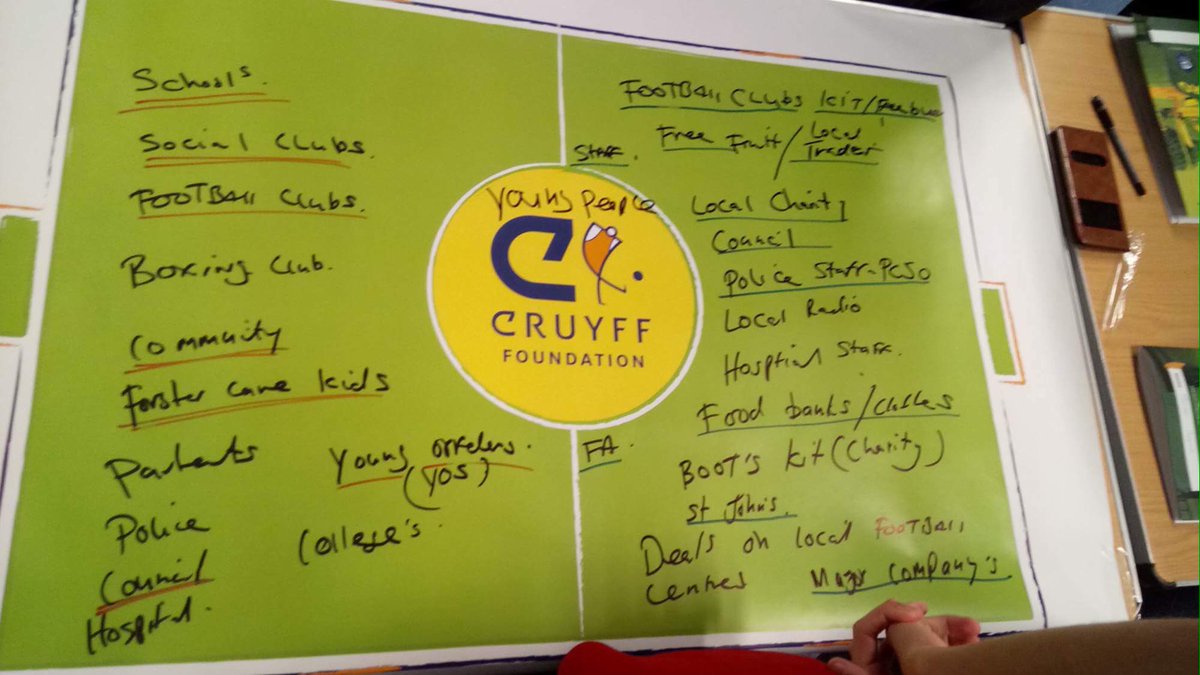 Schools.
Social Clubs.
FOOTBALL Clubs.
Boxing Club.
Community
Forster care kids
Parents
Young offelens.
(YOS)
Police
College's
Council
Hospital.
STAFF.
Young People
CRUYFF
FOUNDATION
FA.
FOOTBALL Clubs KIT/
Free Fruit/Local
Trader
Local Charity
Council
Police Staff-PCSO
Local Radio
Hosptial Staff.
Food banks/
BOOT'S Kit (Charity)
St John's.
Deals on local FOOTBALL
Centres Major Company's